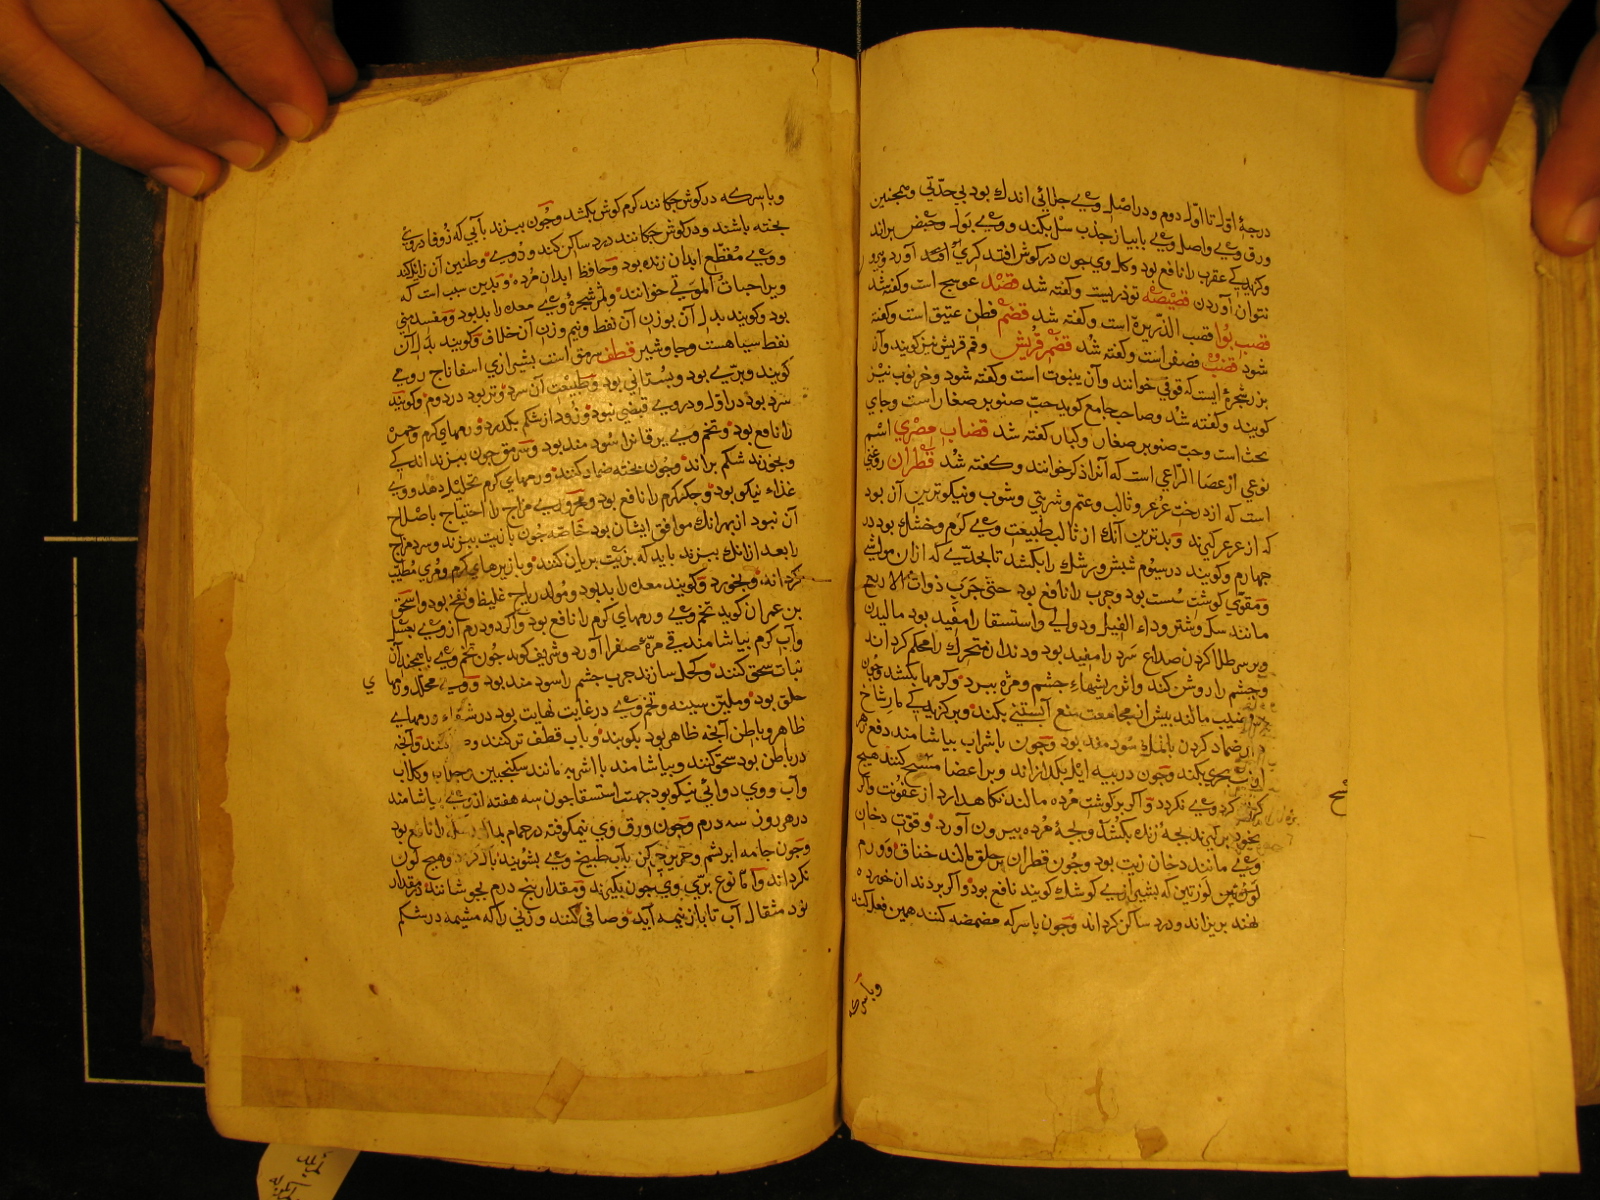 درجهٔ اوّل تا اوّل دوم ودر اصل وی جلائی اندك بود بی حدّتی وهمچنین
ورق وی واصل وی بابیاز جذب سل بکند ووی بول وحیض براند
وکزیدکی عقرب را نافع بود وکل وی جون در کوش افتد کری آورد
نتوان آوردن قصیصه توذریست وکفته شد قصد عوسج است وکفته شد
قصب بوا قصب الذریره است وکفته شد قضم قطن عتیق است وکفته
شود قضب فصفصه است وکفته شد قضم قریش وقم قریش نیز کویند وآن
بزر شجرهٔ ایست که قوفی خوانند وآن ینبوت است وکفته شود وخرنوب نیز
کویند وکفته شد وصاحب جامع کوید حبّ صنوبر صغار است وجای
بحث است وحبّ صنوبر صغار وکبار کفته شد قضاب مصری اسم
نوعی از عصا الرّاعی است که آنرا ذکر خوانند وکفته شد قطران روغنی
است که از درخت عرعر وثالب وعتم وشربتی وشوب ونیکوترین آن بود
که از عرعر کیرند وبدترین آنك از ثالب طبیعت وی کرم وخشك بود در
جهارم وکویند در سیوم شبش ورشك را بکشد تا بحدّی که از ان مواشی
ومقوّی کوشت سست بود وجرب را نافع بود حتّی جرب ذوات الاربع
مانند سك وشتر وداء الفیل ودوالی واستسقا را مفید بود مالیدن
وبر سر طلا کردن صداع سرد را مفید بود ودندان متحرك را محکم کرداند
وجشم را روشن کند واثر ریشهاء جشم ومژه ببرد وکرمها بکشد وجون
بر قضیب مالند بیش از مجامعت منع آبستنی بکند وبر کزیدکی مار شاخ
دار ضماد کردن با نمك سود مند بود وجون با شراب بیاشامند دفع زهر
ارنب بحری بکند وجون در پیه ایّل بکدازاند وبر اعضا مسح کنند هیج
کزنده کرد وی نکردد واکر بر کوشت مرده مالند نکاهدارد از عفونت واکر
بخود برکیرند بجهٔ زنده بکشد وبجهٔ مرده بیرون آورد وقوّت دخان
وی مانند دخان زیت بود وجون قطران بر حلق مالند خناق وورم
لوزتین که بشیرازی کوشك کویند نافع بود واکر بر دندان خورده
نهند بریزاند ودرد ساکن کرداند وجون با سرکه مضمضه کنند همین فعل کند
وبا سرکه
وبا سرکه در کوش جکانند کرم کوش بکشد وجون ببزند بآبی که زوفا در وی
بخته باشند ودر کوش جکانند درد ساکن کند ودوی وطنین آن زایل کند
ووی مقطّع ابدان زنده بود وحافظ ابدان مرده وبدین سبب است که
ویرا حیات الموتی خوانند وثمر شجرهٔ وی معده را بد بود ومفسد منی
بود وکویند بدل آن بوزن آن نفط ونیم وزن آن خلاف وکویند بدل آن
نفط سیاهست وجاوشیر قطف سرمق است بشیرازی اسفاناج رومی
کویند وبرّی بود وبستانی بود وطبیعت آن سرد وتر بود در دوم وکویند
سرد بود در اوّل ودر وی قبضی نبود وزود از شکم بکذرد ورمهای کرم وجمره
را نافع بود وتخم وی یرقانرا سود مند بود وسرمق جون ببزند اندکی
وبخورند شکم براند وجون بخته ضماد کنند ورمهای کرم تحلیل دهد ووی
غذاء نیکو بود وجکر کرم را نافع بود ومحروری مزاج را احتیاج باصلاح
آن نبود از بهر انك موافق ایشان بود خاصّه جون با زیت ببزند وسرد مزاج
را بعد از انك ببزند باید که بزیت بریان کنند وبا ابزرهای کرم ومری مطیّب
کردانه وبخورد وکویند معده را بد بود ومولد ریاح غلیظ ونفخ بود واسحق
بن عمران کوید تخم وی ورمهای کرم را نافع بود واکر دو درم از وی بعسل
وآب کرم بیاشامند قی مرّهٔ صفرا آورد وشریف کوید جون تخم وی با همچندان
نبات سحق کنند وکحل سازند جرب جشم را سود مند بود ووی محلّل ورمهای
حلق بود وملیّن سینه وتخم وی در غایت نهایت بود در شفاء ورمهای
ظاهر وباطن آنجه ظاهر بود بکویند وباب قطف تر کنند کنند وآنجه
در باطن بود سحق کنند وبیاشامند با اشربه مانند سکنجبین وجلاب وکلاب
وآب ووی دوائی نیکو بود جهت استسقا جون سه هفته از وی بیاشامند
در هر روز سه درم وجون ورق وی نیمکوفته در حمام بمالند را نافع بود
وجون جامه ابریشم وحریر جرکن بآب طبیخ وی بشویند پاك کند وهیج کون
نکرداند وامّا نوع برّی وی جون بکیرند ومقدار بنج درم بجوشانند در مقدار
نود مثقال آب تا باز نیمه آید وصافی کنند وزنی را که مشیمه در شکم